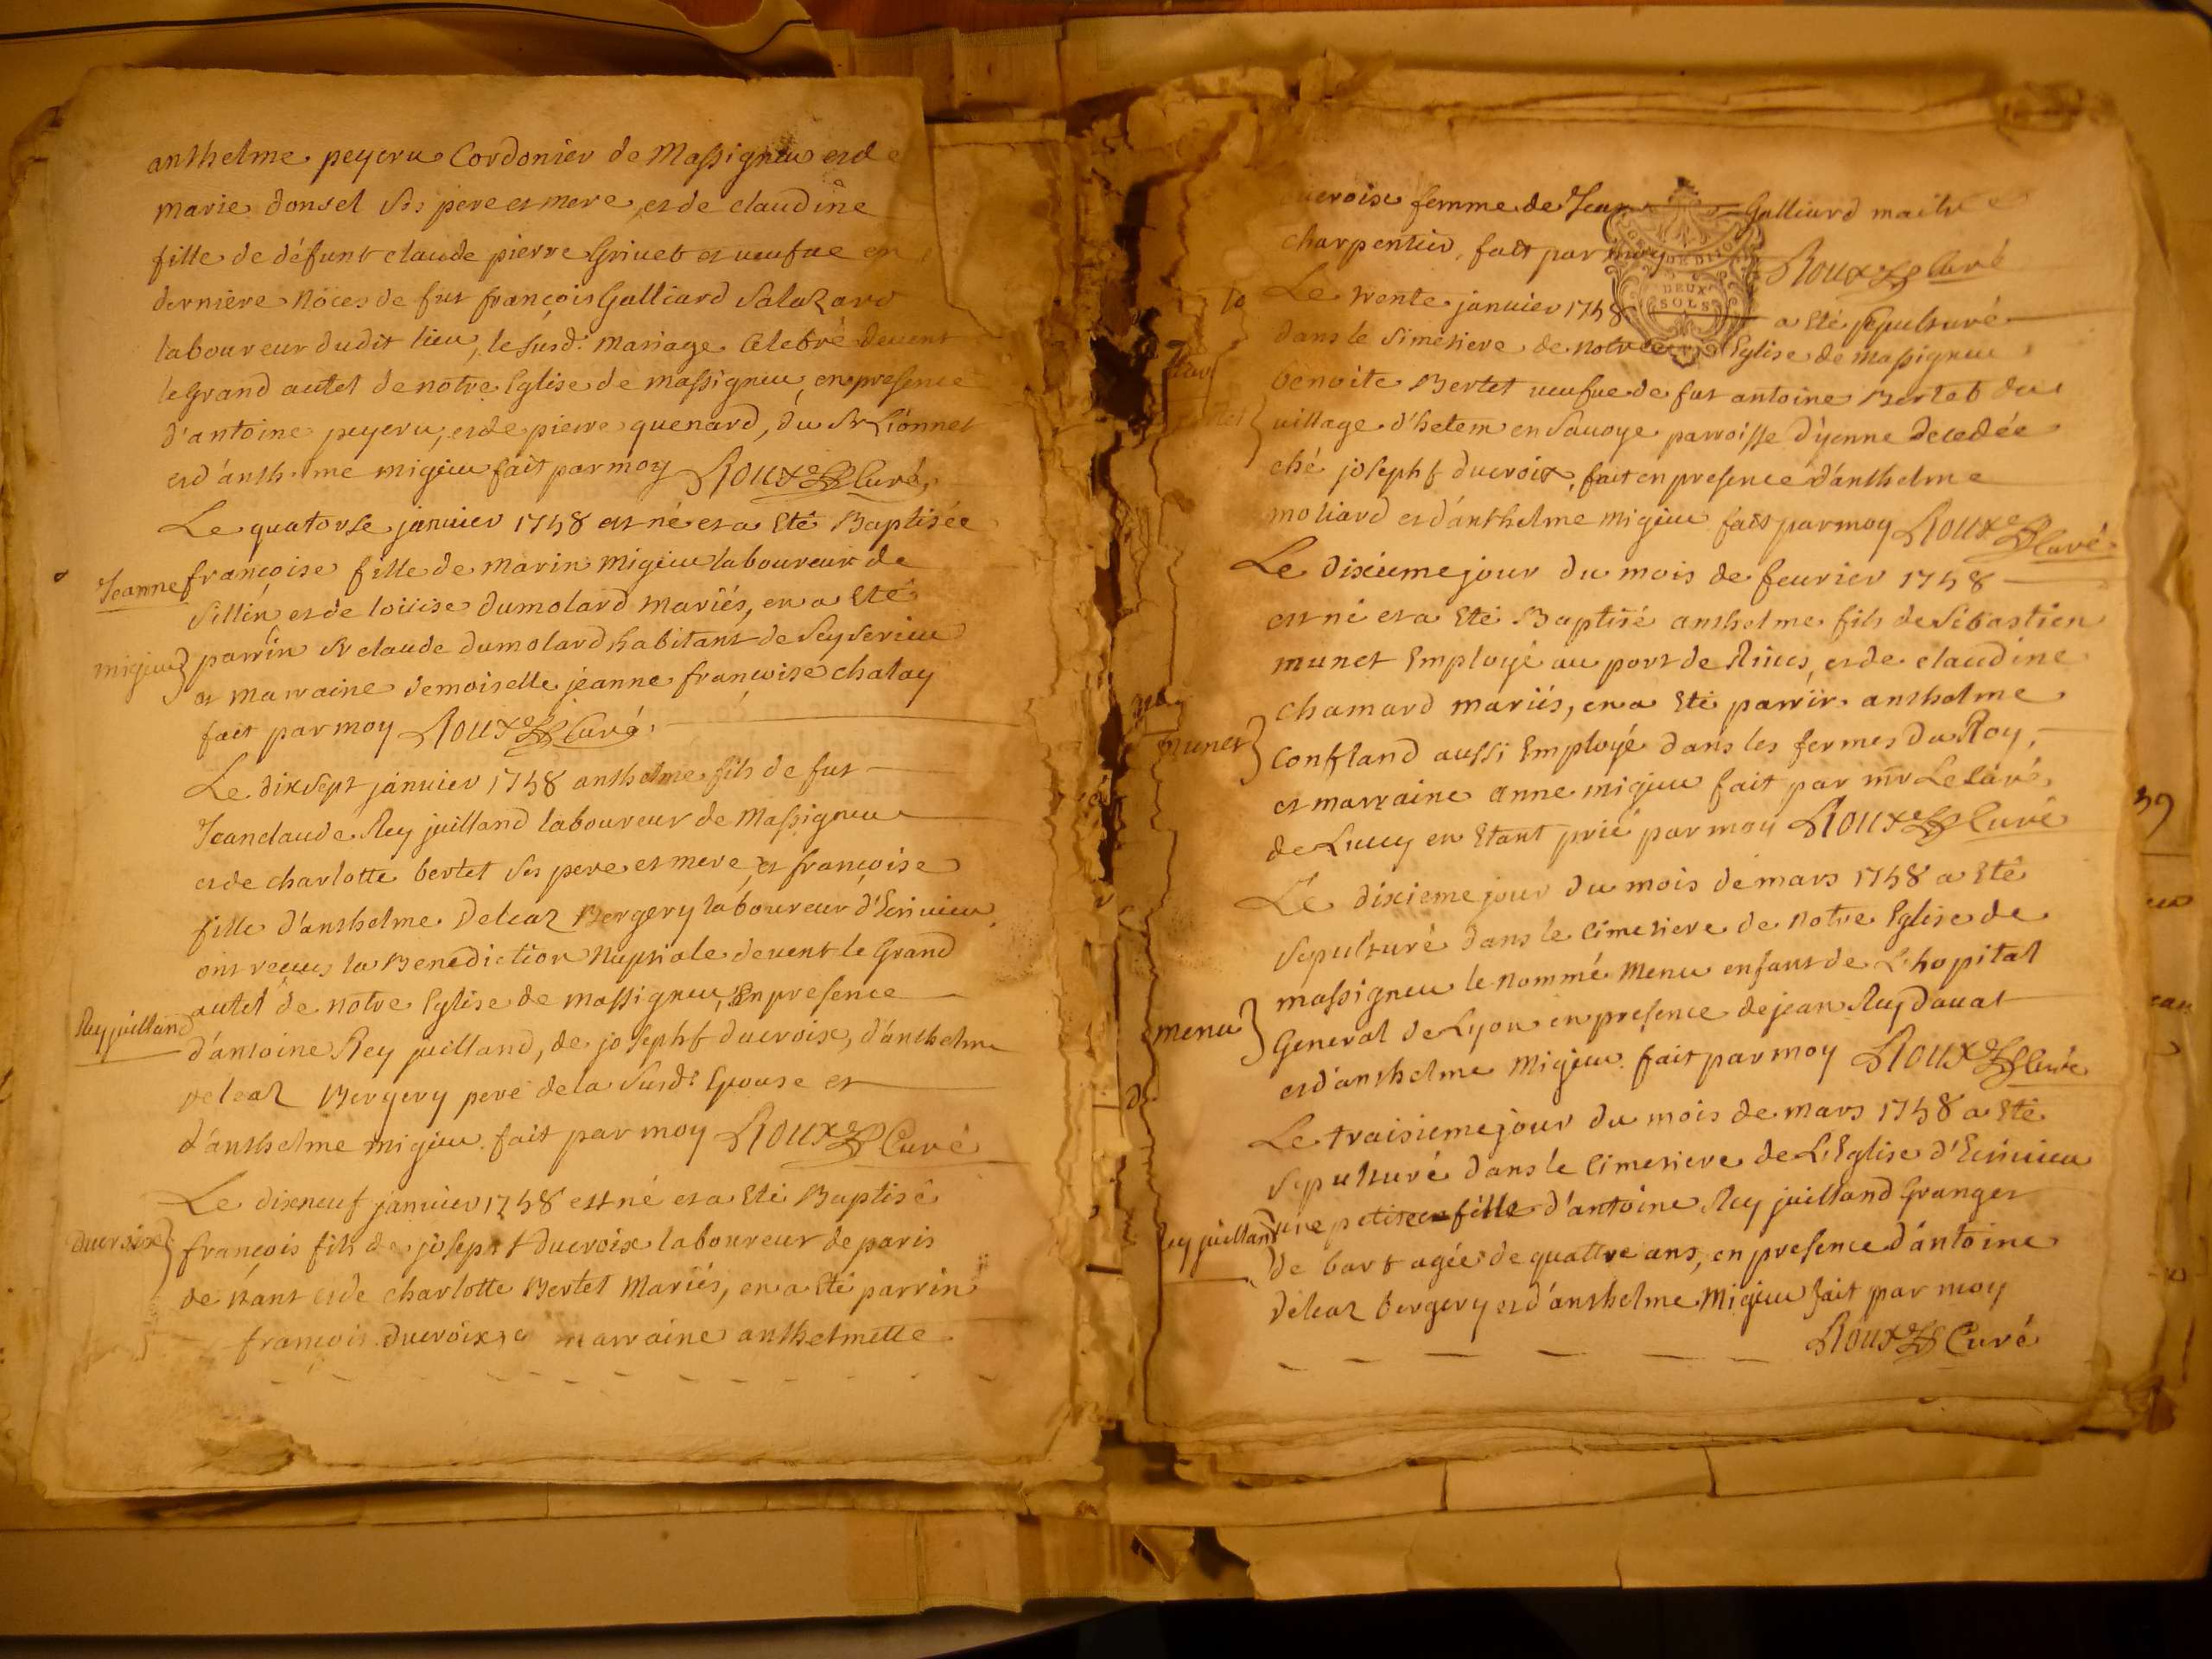 anthelme peyeru Cordonier de Massigneu et de
marie donset Ses pere et mere, et de claudine
fille de défunt claude pierre Grivet et veufve en
derniere Nôces de fut françois Galliard Salazard
laboureur dudit lieu, le susd. Mariage Celebré devent
le Grand autel de notre Eglise de massigneu, en presence
d'antoine peyeru, et de pierre quenard, du Sr Lionnet
et d'anthelme migieu fait par moy Roux Curé
Le quatorse janvier 1758 est né et a Eté Baptisée
Jeanne françoise fille de marin migieu laboureur de
Sillin et de loüise dumolard mariés, en a Eté
migieu parrin Sr claude dumolard habitant de Seyserieu
et marraine demoiselle jeanne françoise chalay
fait par moy Roux Curé
Le dix sept janvier 1758 anthelme fils de fut
Jean claude Rey juilland laboureur de Massigneu
et de charlotte bertet Ses pere et mere, et françoise
fille d'anthelme Deleaz Bergery laboureur d'Ecrivieu
ont reçus la Benediction Nuptiale devent le Grand
autel de notre Eglise de massigneu, En presence
Rey juilland
d'antoine Rey juilland, de josephf ducroix, d'anthelme
deleaz Bergery pere de la Susd. Epouse et
d'anthelme migieu. fait par moy Roux Curé
Le dixneuf janvier 1758 est né et a Eté Baptisé
Ducroix françois fils de josephf ducroix laboureur de paris
de Nant et de charlotte Bertet Mariés, en a Eté parrin
françois ducroix, et marraine anthelmette
ducroise femme de Jean Galliard maitre
charpentier, fait par moy Roux Curé
DEUX
SOLS
Le trente janvier 1758 a Eté sepulturé
dans le Simetiere de notre Eglise de massigneu
benoite Bertet veufve de fut antoine Bertet du
village d'hetem en Savoye parroisse d'yenne decedée
ché josephf ducroix, fait en presence d'anthelme
moliard et d'anthelme migieu fait par moy Roux Curé
Le dixieme jour du mois de fevrier 1758
est né et a Eté Baptisé anthelme fils de Sebastien
munet Employé au port de Rives, et de claudine
chamard mariés, en a Eté parrir anthelme
munet
Confland aussi Employé dans les fermes du Roy,
et marraine anne migieu fait par mr Le Curé
de Lucey en Etant prié par moy Roux Curé
Le dixieme jour du mois de mars 1758 a Eté
Sepulturé dans le Cimetiere de notre Eglise de
massigneu le nommé menu enfant de L'hopital
menu General de Lyon en presence de jean Rey davat
et d'anthelme Migieu. fait par moy Roux Curé
Le traisieme jour du mois de mars 1758 a Eté
Sepulturé dans le Cimetiere de L'Eglise d'Ecrivieu
Rey juilland une petitee fille d'antoine Rey juilland Granger
de bart agée de quattre ans, en presence d'antoine
deleaz bergery et d'anthelme Migieu fait par moy
Roux Curé